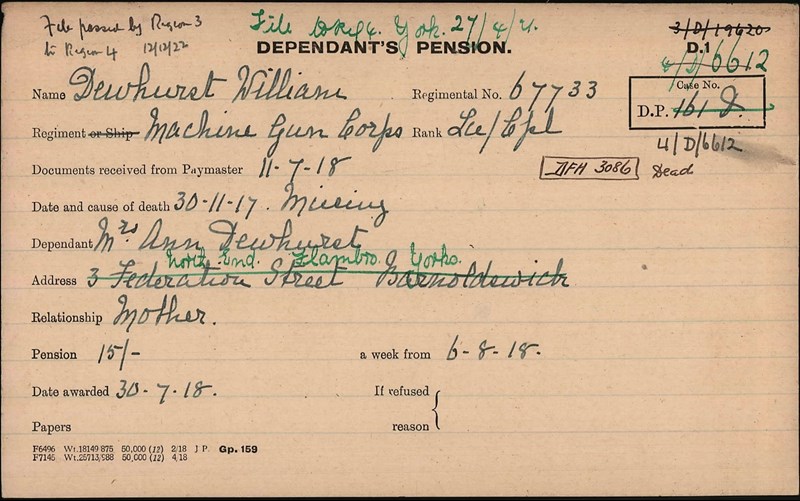 File passed by Region 3
to Region 4 12/12/22
File York. 27/4/21.
3/D/19620
DEPENDANT'S PENSION.
D.1
4/D/6612
Name Dewhurst William
Regimental No. 67733
Case No.
D.P. 161 D.
Regiment or Ship Machine Gun Corps
Rank Lce/Cpl
4/D/6612
Documents received from Paymaster 11-7-18
DFH 3086
Dead
Date and cause of death 30-11-17. Missing
Dependant Mrs Ann Dewhurst
North End. Flambro. Yorks.
Address 3 Federation Street Barnoldswick
Relationship Mother.
Pension 15/- a week from 6-8-18.
Date awarded 30-7-18. If refused
Papers reason
F6496 Wt.18149 875 50,000 (12) 2/18 J P. Gp. 159
F7145 Wt.25713/988 50,000 (12) 4/18